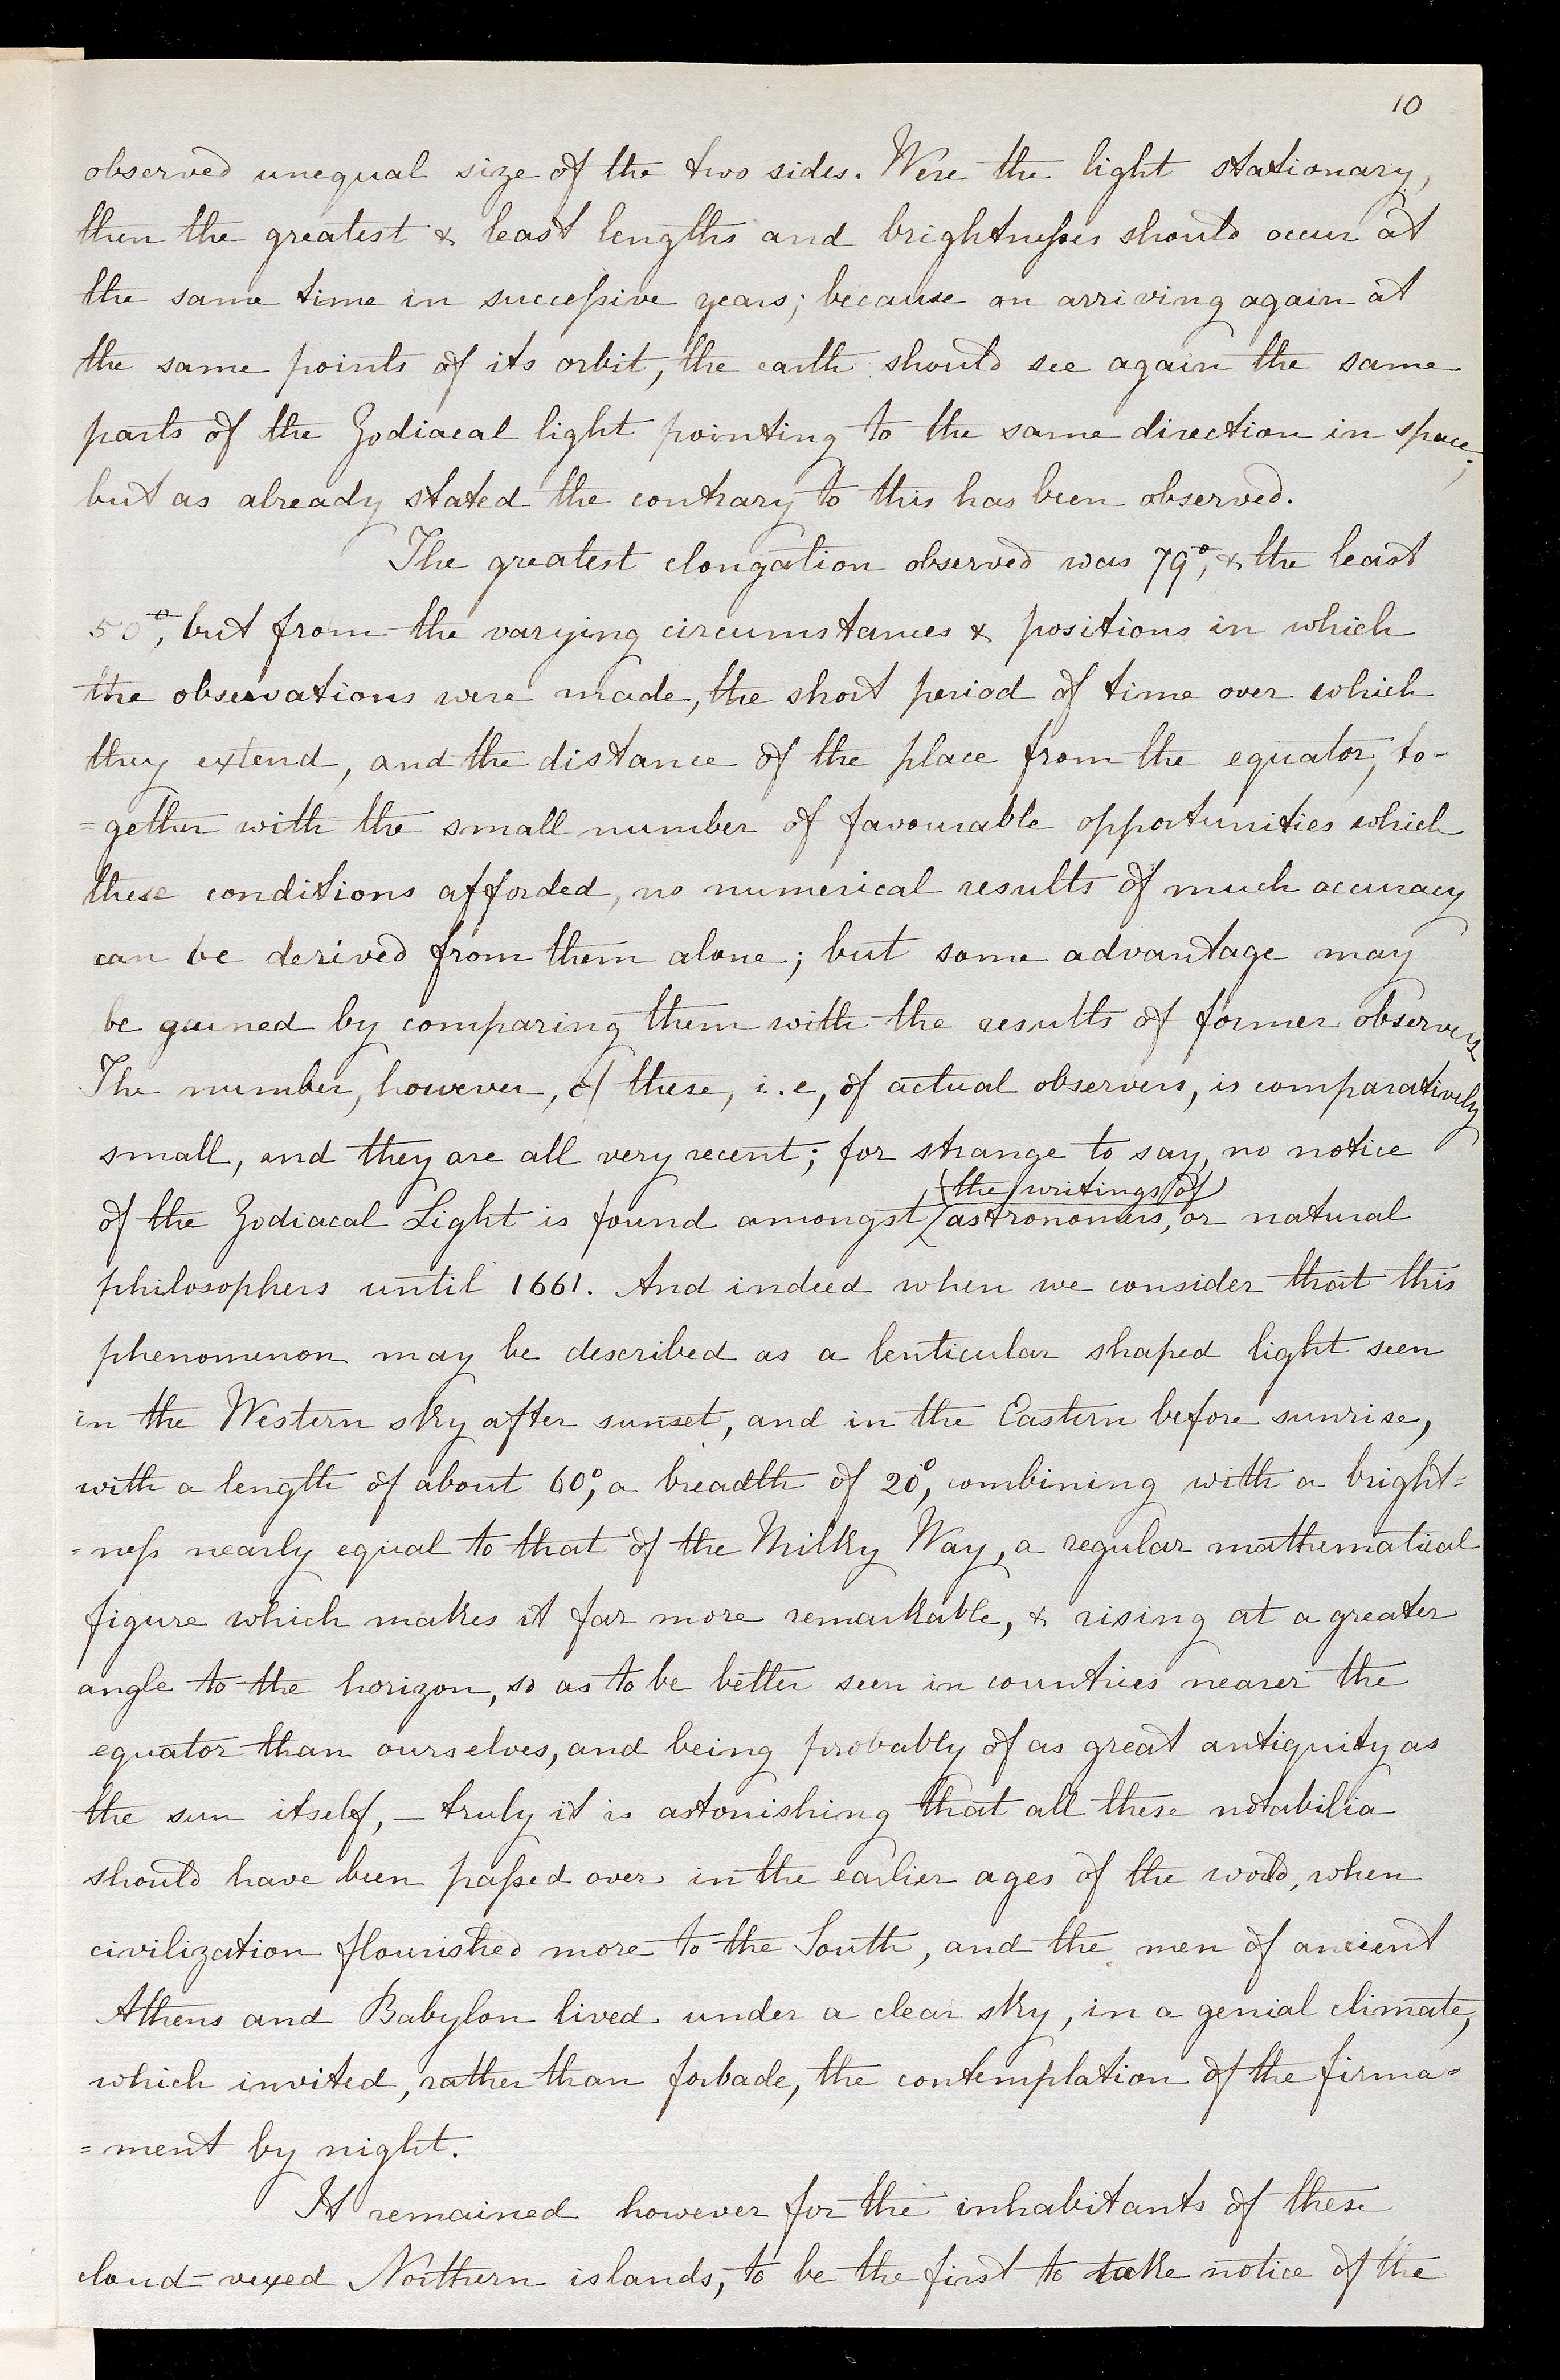 10
observed unequal size of the two sides. Were the light stationary,
then the greatest & least lengths and brightnesses should occur at
the same time in successive years; because on arriving again at
the same points of its orbit, the earth should see again the same
parts of the Zodiacal light pointing to the same direction in space;
but as already stated the contrary to this has been observed.
The greatest elongation observed was 79°, & the least
50°, but from the varying circumstances & positions in which
the observations were made, the short period of time over which
they extend, and the distance of the place from the equator, to-
=gether with the small number of favourable opportunities which
these conditions afforded, no numerical results of much accuracy
can be derived from them alone; but some advantage may
be gained by comparing them with the results of former observers
The number, however, of these, i.e, of actual observers, is comparatively
small, and they are all very recent; for strange to say, no notice
the writings of
of the Zodiacal Light is found amongst astronomers, or natural
philosophers until 1661. And indeed when we consider that this
phenomenon may be described as a lenticular shaped light seen
in the Western sky after sunset, and in the Eastern before sunrise,
with a length of about 60°, a breadth of 20°, combining with a bright=
=ness nearly equal to that of the Milky Way, a regular mathematical
figure which makes it far more remarkable, & rising at a greater
angle to the horizon, so as to be better seen in countries nearer the
equator than ourselves, and being probably of as great antiquity as
the sun itself, — truly it is astonishing that all these notabilia
should have been passed over in the earlier ages of the world, when
civilization flourished more to the South, and the men of ancient
Athens and Babylon lived under a clear sky, in a genial climate,
which invited, rather than forbade, the contemplation of the firma=
=ment by night.
It remained however for the inhabitants of these
cloud-vexed Northern islands, to be the first to take notice of the